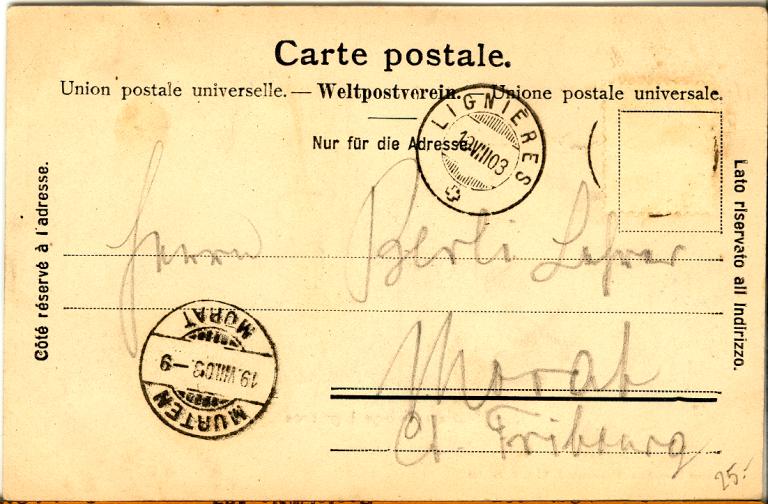 Carte postale.
Union postale universelle. — Weltpostverein. — Unione postale universale.
Nur für die Adresse.
Côté réservé à l'adresse.
Lato riservato all Indirizzo.
LIGNIÈRES
VIII 03
Herrn Berli Lehrer
Morat
Ct. Fribourg
MURTEN
19.VIII.03.–9
MORAT
25.-